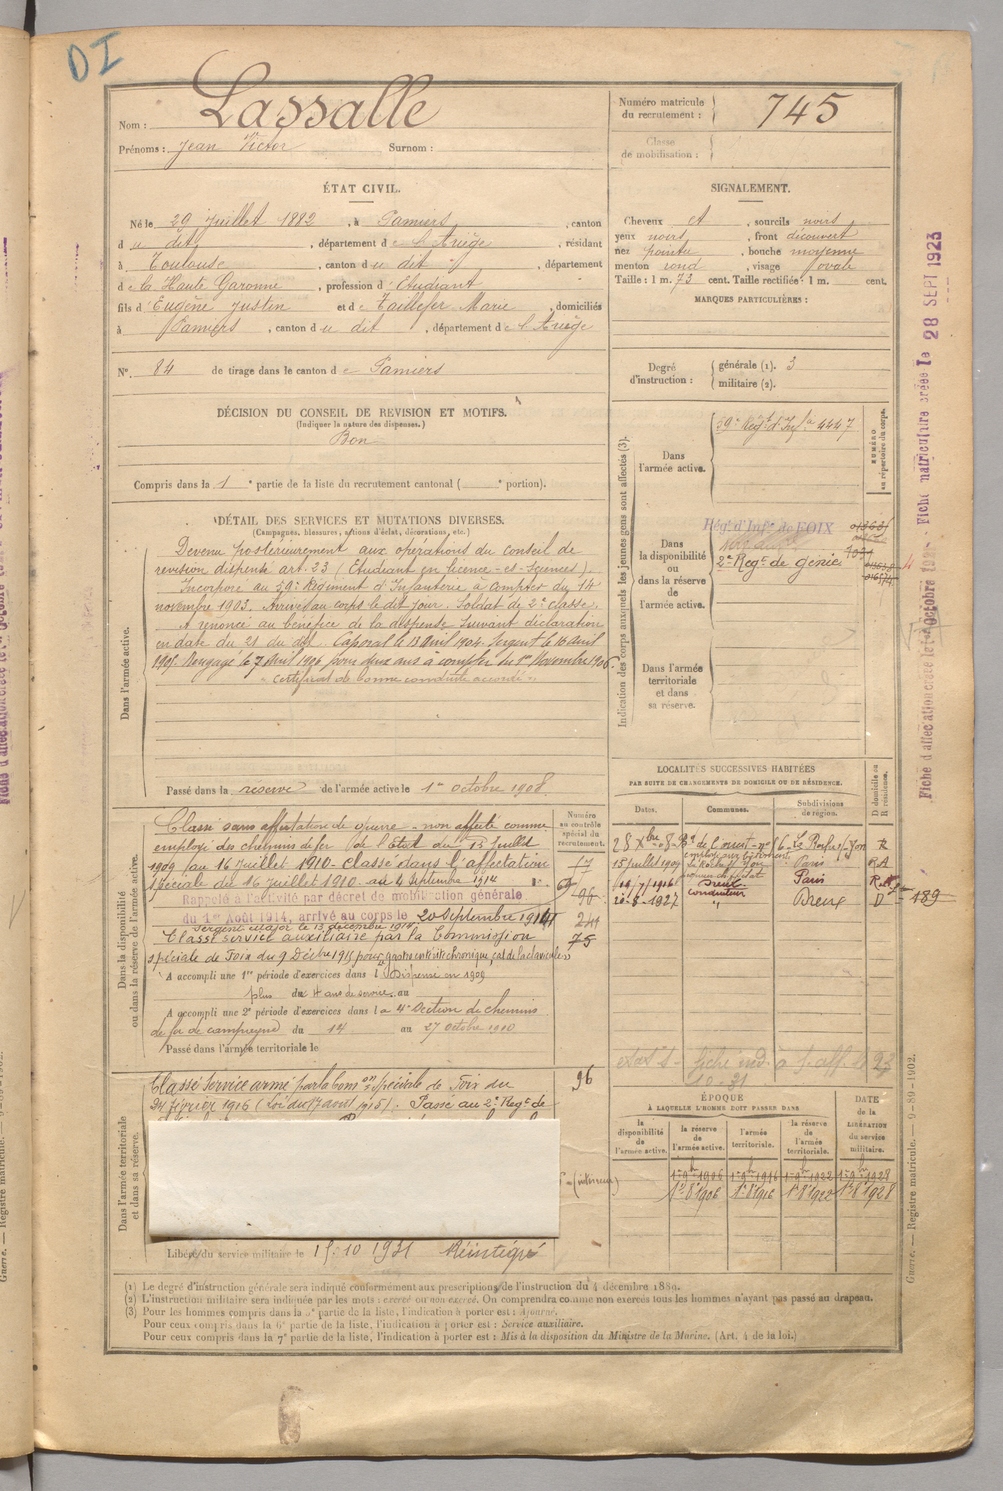 DI
Nom : Lassalle
Prénoms : Jean Victor Surnom :
Numéro matricule du recrutement : 745
Classe de mobilisation :
ÉTAT CIVIL.
Né le 29 juillet 1882, à Pamiers, canton
du dit, département de l'Ariège, résidant
à Toulouse, canton du dit, département
de la Haute Garonne, profession d'Étudiant
fils d'Eugène Justin et de Taillefer Marie, domiciliés
à Pamiers, canton du dit, département de l'Ariège
N° 84 de tirage dans le canton de Pamiers
SIGNALEMENT.
Cheveux ct, sourcils noirs
yeux noirs, front découvert
nez pointu, bouche moyenne
menton rond, visage ovale
Taille : 1 m. 73 cent. Taille rectifiée : 1 m. cent.
MARQUES PARTICULIÈRES :
Degré d'instruction : générale (1). 3
militaire (2).
DÉCISION DU CONSEIL DE REVISION ET MOTIFS.
(Indiquer la nature des dispenses.)
Bon
Compris dans la 1e partie de la liste du recrutement cantonal ( e portion).
DÉTAIL DES SERVICES ET MUTATIONS DIVERSES.
(Campagnes, blessures, actions d'éclat, décorations, etc.)
Dans l'armée active.
Devenu postérieurement aux opérations du conseil de
revision dispensé art. 23 (Étudiant en licence-ès-Sciences).
Incorporé au 59e Régiment d'Infanterie à compter du 14
novembre 1903. Arrivé au corps le dit jour. Soldat de 2e classe.
A renoncé au bénéfice de la dispense suivant déclaration
en date du 21 du dit. Caporal le 13 avril 1904. Sergent le 10 avril
1905. Rengagé le 7 avril 1906 pour deux ans à compter du 1er Novembre 1906.
"Certificat de bonne conduite accordé".
Passé dans la réserve de l'armée active le 1er octobre 1908.
Indication des corps auxquels les jeunes gens sont affectés (3).
NUMÉRO au répertoire du corps.
Dans l'armée active. 59e Régt d'Infie 4447
Dans la disponibilité ou dans la réserve de l'armée active.
Rég. d'Infie de FOIX
2e Régt de génie
Dans l'armée territoriale et dans sa réserve.
LOCALITÉS SUCCESSIVES HABITÉES
PAR SUITE DE CHANGEMENTS DE DOMICILE OU DE RÉSIDENCE.
Dates. Communes. Subdivisions de région. D domicile ou R résidence.
15 juillet 1909 Paris RA
19/7/1916 Dreux Paris
20-8-1927 conducteur " Dreux D 189
Dans la disponibilité ou dans la réserve de l'armée active.
Numéro au contrôle spécial du recrutement.
Classé sans affectation de guerre - non affecté comme
employé des chemins de fer de l'État du 15 Juillet
1909 au 16 juillet 1910 - classé dans l'affectation
spéciale du 16 juillet 1910 au 4 septembre 1914
Rappelé à l'activité par décret de mobilisation générale
du 1er Août 1914, arrivé au corps le 20 Septembre 1914
Sergent Major le 13 décembre 1914
Classé service auxiliaire par la Commission
spéciale de Foix du 9 Décbre 1915 pour gastro entérite chronique, cal de la clavicule
17
96
241
75
A accompli une 1re période d'exercices dans l Dispensé en 1909
plus de 4 ans de service, au
A accompli une 2e période d'exercices dans la 4e Section de chemins
de fer de campagne du 14 au 27 octobre 1910
Passé dans l'armée territoriale le
Dans l'armée territoriale et dans sa réserve.
Classé service armé par la Comon spéciale de Foix du
24 février 1916 (Loi du 17 août 1915). Passé au 2e Régt de
96
(intérieur)
Libéré du service militaire le 15-10 1931 Réintégré
10-31
ÉPOQUE
À LAQUELLE L'HOMME DOIT PASSER DANS
la disponibilité de l'armée active. la réserve de l'armée active. l'armée territoriale. la réserve de l'armée territoriale. DATE de la LIBÉRATION du service militaire.
1er 9bre 1906 1er 9bre 1916 1er 9bre 1922 1er 9bre 1928
1er 8bre 1906 1er 8bre 1916 1er 8bre 1922 1er 8bre 1928
(1) Le degré d'instruction générale sera indiqué conformément aux prescriptions de l'instruction du 4 décembre 1889.
(2) L'instruction militaire sera indiquée par les mots : exercé ou non exercé. On comprendra comme non exercés tous les hommes n'ayant pas passé au drapeau.
(3) Pour les hommes compris dans la 5e partie de la liste, l'indication à porter est : Ajourné.
Pour ceux compris dans la 6e partie de la liste, l'indication à porter est : Service auxiliaire.
Pour ceux compris dans la 7e partie de la liste, l'indication à porter est : Mis à la disposition du Ministre de la Marine. (Art. 4 de la loi.)
Guerre. — Registre matricule. — 9-89-1902.
Fiche matriculaire créée le 28 SEPT 1923
Fiche d'affectation créée le 1er Octobre